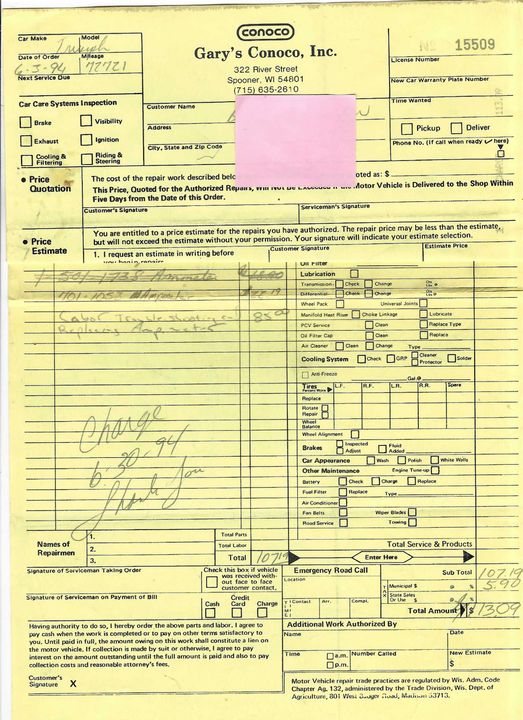 conoco
Gary's Conoco, Inc.
322 River Street
Spooner, WI 54801
(715) 635-2610
No 15509
Car Make Model
Triumph
Date of Order Mileage
6-3-94 72721
Next Service Due
License Number
New Car Warranty Plate Number
Time Wanted
Pickup Deliver
Phone No. (If call ready when here)
Car Care Systems Inspection
Brake Visibility
Exhaust Ignition
Cooling & Filtering Riding & Steering
Customer Name
Address
City, State and Zip Code
• Price Quotation
The cost of the repair work described below oted as: $
This Price, Quoted for the Authorized Repairs, Will Not Be Exceeded if the Motor Vehicle is Delivered to the Shop Within
Five Days from the Date of this Order.
Customer's Signature Serviceman's Signature
• Price Estimate
You are entitled to a price estimate for the repairs you have authorized. The repair price may be less than the estimate,
but will not exceed the estimate without your permission. Your signature will indicate your estimate selection.
Customer Signature Estimate Price
1. I request an estimate in writing before
you begin repairs
1-501-1735 Ammeter
Ammeter 22.19
Labor Trouble Shooting &
Replacing Amp meter 85.00
Charge
6-30-94
Thank You
Oil Filter
Lubrication
Transmission Check Change
Differential Check Change
Wheel Pack Universal Joints
Manifold Heat Riser Choke Linkage Lubricate
PCV Service Clean Replace Type
Oil Filter Cap Clean Replace
Air Cleaner Clean Change Type
Cooling System Check GRP Cleaner Protector Solder
Anti-Freeze Gal @
Tires L.F. R.F. L.R. R.R. Spare
Replace
Rotate
Repair
Wheel Balance
Wheel Alignment
Brakes Inspected Adjust Fluid Added
Car Appearance Wash Polish White Walls
Other Maintenance Engine Tune-up
Battery Check Charge Replace
Fuel Filter Replace Type
Air Conditioner
Fan Belts Wiper Blades
Road Service Towing
Names of Repairmen
1.
2.
3.
Total Parts
Total Labor
Total 107.19
Total Service & Products
Enter Here
Signature of Serviceman Taking Order
Check this box if vehicle was received without face to face customer contact.
Signature of Serviceman on Payment of Bill
Cash Credit Card Charge
Emergency Road Call
Location
TIME Contact Arr. Compl.
Sub Total 107.19
TAX Municipal $ @ %
State Sales Or Use $ @ % 5.90
Total Amount $ 113.09
Additional Work Authorized By
Name Date
Time a.m. p.m. Number Called New Estimate $
Having authority to do so, I hereby order the above parts and labor. I agree to
pay cash when the work is completed or to pay on other terms satisfactory to
you. Until paid in full, the amount owing on this work shall constitute a lien on
the motor vehicle. If collection is made by suit or otherwise, I agree to pay
interest on the amount outstanding until the full amount is paid and also to pay
collection costs and reasonable attorney's fees.
Customer's Signature X
Motor Vehicle repair trade practices are regulated by Wis. Adm. Code
Chapter Ag. 132, administered by the Trade Division, Wis. Dept. of
Agriculture, 801 West Badger Road, Madison 53713.